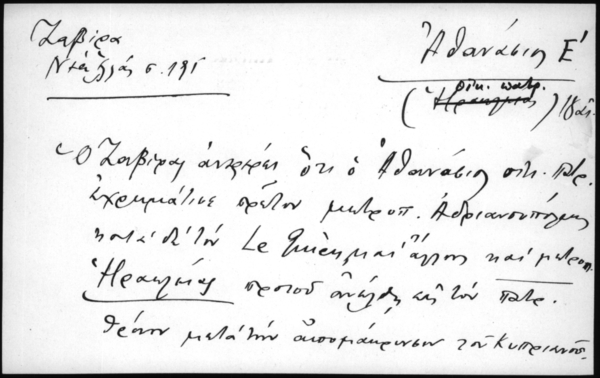 Ζαβίρα
Νέα Ἑλλάς σ. 191
Ἀθανάσιος Ε'
οἰκ. πατρ.
(Ἡρακλείας) 18 αἰ.
Ὁ Ζαβίρας ἀναφέρει ὅτι ὁ Ἀθανάσιος οἰκ. πατρ.
ἐχρημάτισε πρῶτον μητροπ. Ἀδριανουπόλεως
κατὰ δὲ τόν Le Quien καὶ ἄλλους καὶ μητροπ.
Ἡρακλείας προτοῦ ἀνέλθῃ εἰς τόν πατρ.
θρόνον μετὰ τήν ἀπομάκρυνσιν τοῦ Κυπριανοῦ.